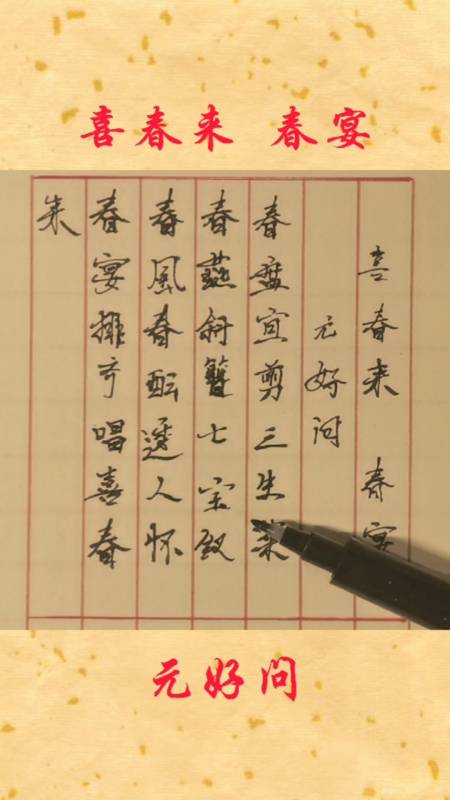 喜春来 春宴
喜春来 春宴
元好问
春盘宜剪三生菜
春燕斜簪七宝钗
春風春酝透人怀
春宴排齐唱喜春
来
元好问